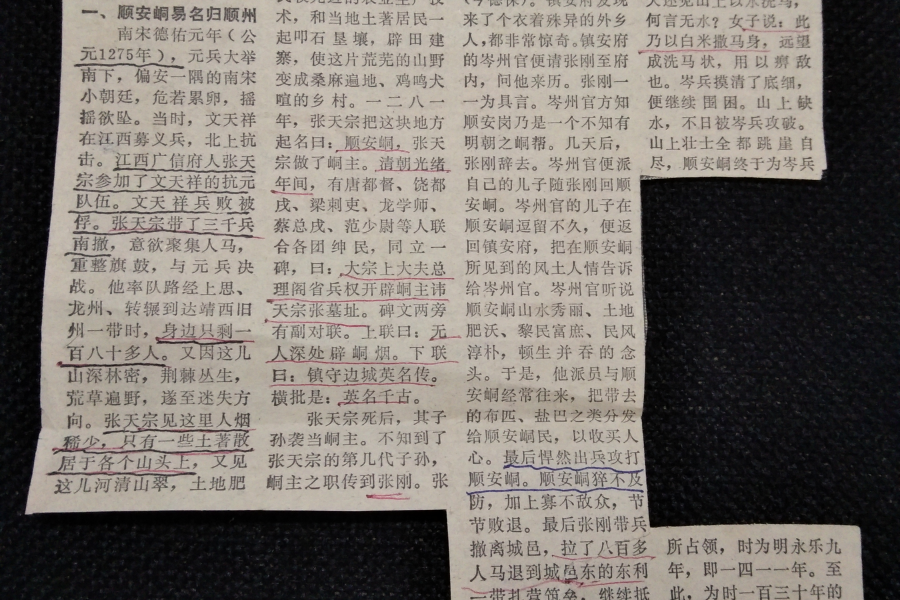 一、顺安峒易名归顺州
南宋德佑元年（公
元1275年），元兵大举
南下，偏安一隅的南宋
小朝廷，危若累卵，摇
摇欲坠。当时，文天祥
在江西募义兵，北上抗
击。江西广信府人张天
宗参加了文天祥的抗元
队伍。文天祥兵败被
俘。张天宗带了三千兵
南撤，意欲聚集人马，
重整旗鼓，与元兵决
战。他率队路经上思、
龙州、转辗到达靖西旧
州一带时，身边只剩一
百八十多人。又因这儿
山深林密，荆棘丛生，
荒草遍野，遂至迷失方
向。张天宗见这里人烟
稀少，只有一些土著散
居于各个山头上，又见
这儿河清山翠，土地肥
术，和当地土著居民一
起叩石垦壤，辟田建
寨，使这片荒芜的山野
变成桑麻遍地、鸡鸣犬
喧的乡村。一二八一
年，张天宗把这块地方
起名曰：顺安峒，张天
宗做了峒主。清朝光绪
年间，有唐都督、饶都
戌、梁刺吏、龙学师、
蔡总戌、范少尉等人联
合各团绅民，同立一
碑，曰：大宗上大夫总
理阁省兵权开辟峒主讳
天宗张墓址。碑文两旁
有副对联。上联曰：无
人深处辟峒烟。下联
曰：镇守边城英名传。
横批是：英名千古。
张天宗死后，其子
孙袭当峒主。不知到了
张天宗的第几代子孙，
峒主之职传到张刚。张
来了个衣着殊异的外乡
人，都非常惊奇。镇安府
的岑州官便请张刚至府
内，问他来历。张刚一
一为具言。岑州官方知
顺安岗乃是一个不知有
明朝之峒帮。几天后，
张刚辞去。岑州官便派
自己的儿子随张刚回顺
安峒。岑州官的儿子在
顺安峒逗留不久，便返
回镇安府，把在顺安峒
所见到的风土人情告诉
给岑州官。岑州官听说
顺安峒山水秀丽、土地
肥沃、黎民富庶、民风
淳朴，顿生并吞的念
头。于是，他派员与顺
安峒经常往来，把带去
的布匹、盐巴之类分发
给顺安峒民，以收买人
心。最后悍然出兵攻打
顺安峒。顺安峒猝不及
防，加上寡不敌众，节
节败退。最后张刚带兵
撤离城邑，拉了八百多
人马退到城邑东的东利
一带扎营筑垒，继续抵
何言无水？女子说：此
乃以白米撒马身，远望
成洗马状，用以癣敌
也。岑兵摸清了底细，
便继续围困。山上缺
水，不日被岑兵攻破。
山上壮士全都跳崖自
尽，顺安峒终于为岑兵
所占领，时为明永乐九
年，即一四一一年。至
此，为时一百三十年的